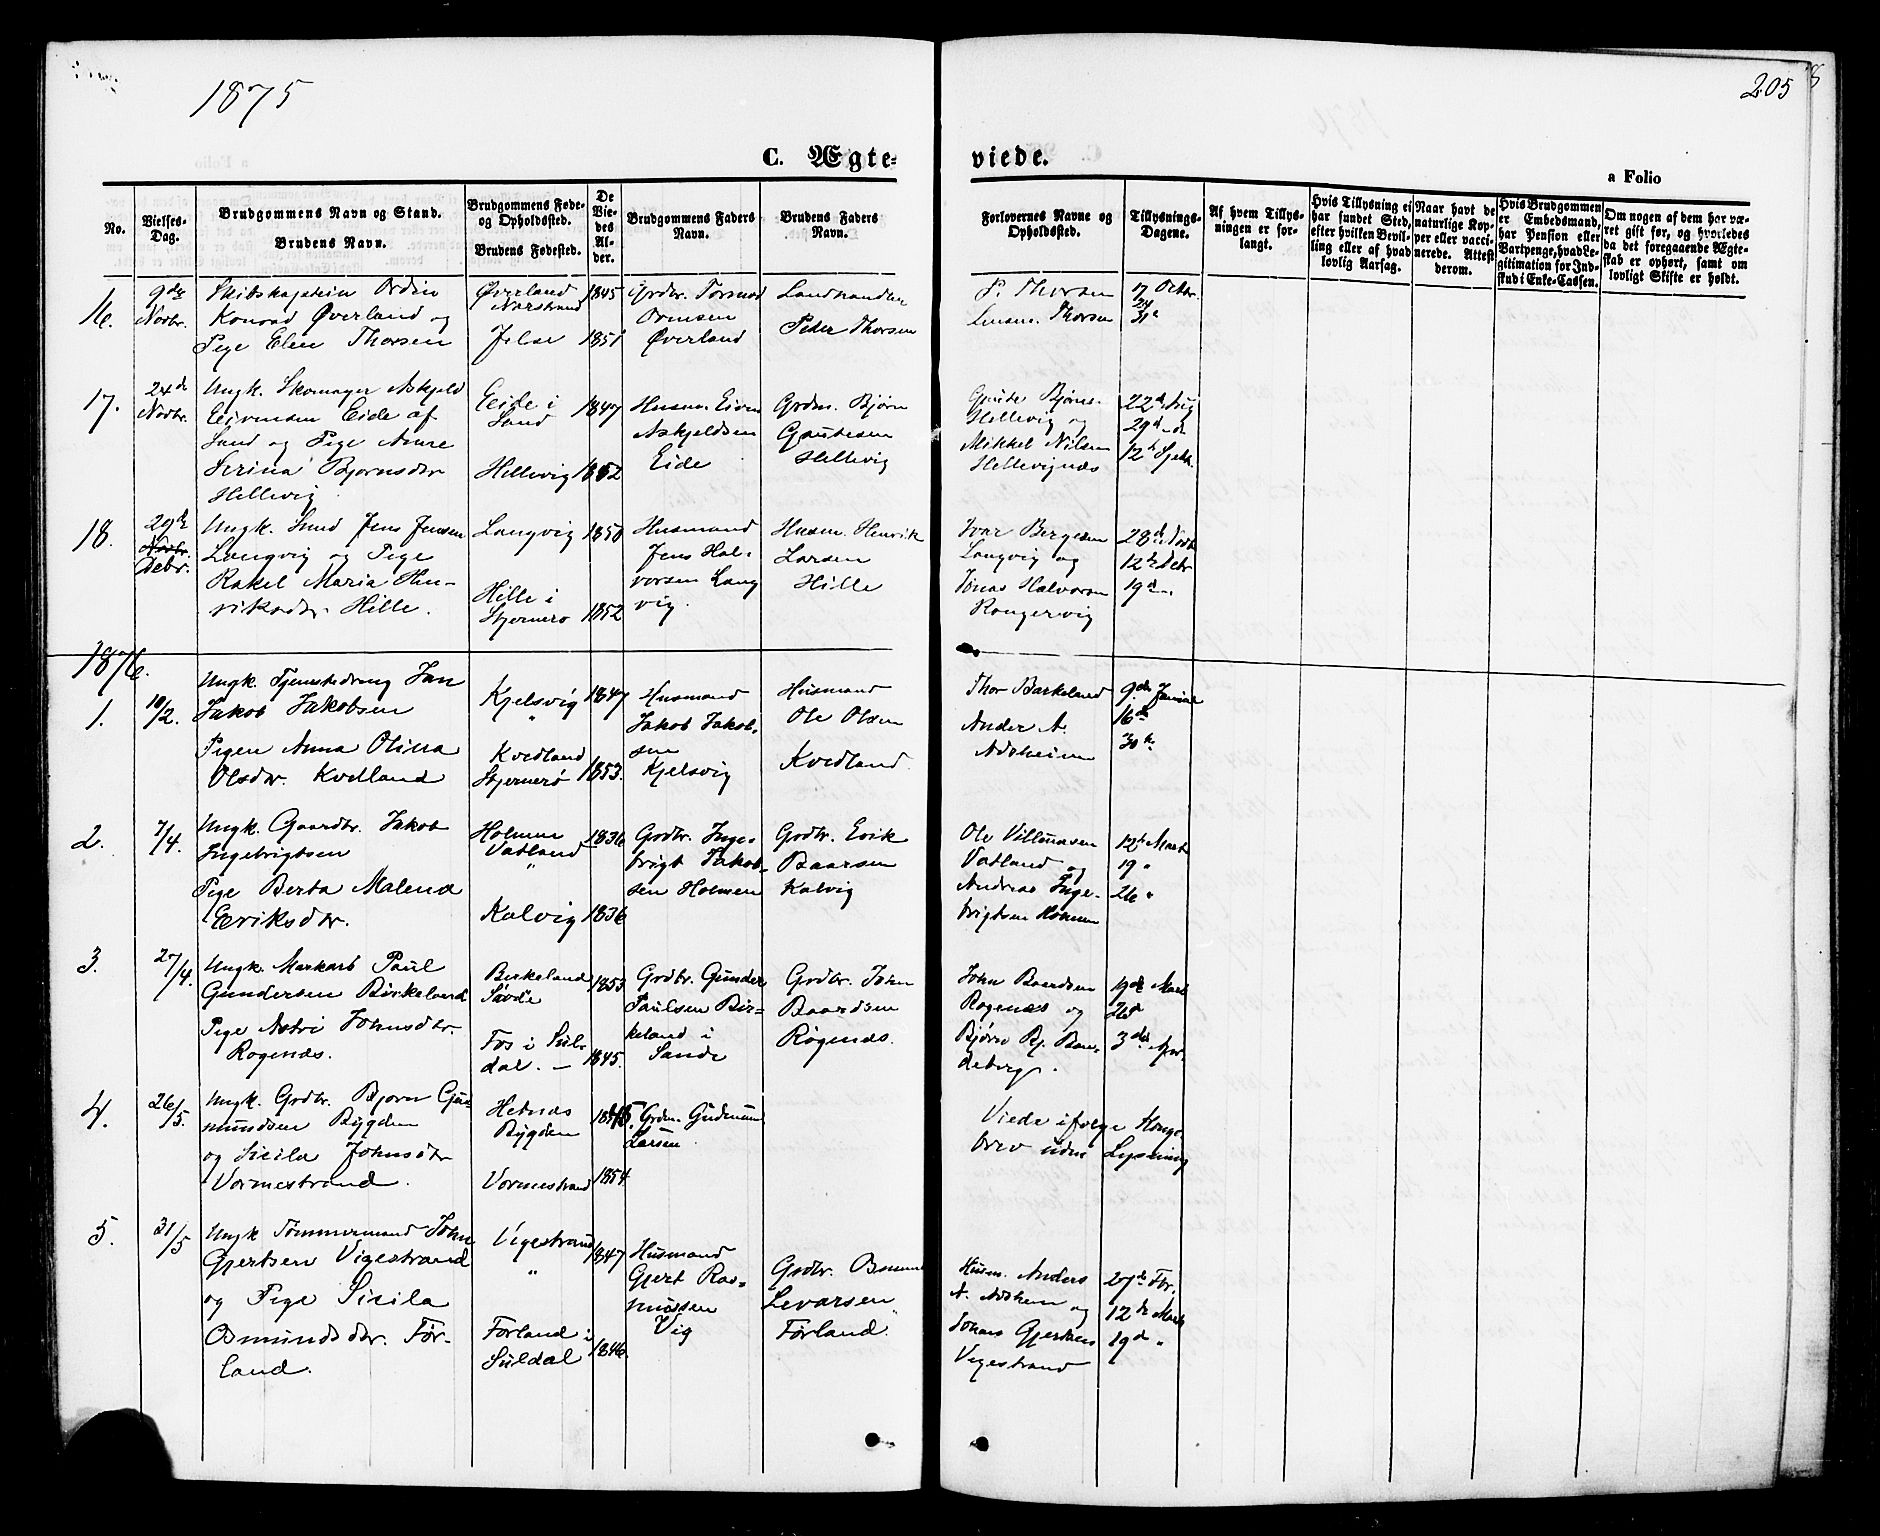 1875
205
C. Ægte-
viede.
a Folio
No.
Vielses-
Dag.
Brudgommens Navn og Stand.
Brudens Navn.
Brudgommens Føde-
og Opholdssted.
Brudens Fødested.
De
Vie-
des
Al-
der.
Brudgommens Faders
Navn.
Brudens Faders
Navn.
Forlovernes Navne og
Opholdssted.
Tillysnings-
Dagene.
Af hvem Tillys-
ningen er for-
langt.
Hvis Tillysning ei
har fundet Sted,
efter hvilken Bevil-
ling eller af hvad
lovlig Aarsag.
Naar havt de
naturlige Kop-
per eller vacci-
nerede. Attest
derom.
Hvis Brudgommen
er Embedsmand,
har Pension eller
Vartpenge, hvad Le-
gitimation for Ind-
skud i Enke-Cassen.
Om nogen af dem har væ-
ret gift før, og hvorledes
da det foregaaende Ægte-
skab er ophørt, samt om
lovligt Skifte er holdt.
16.
9de
Novbr.
Skibskaptein Ordin
Konrad Øverland og
Pige Elen Thorsen
Øverland
Narstrand
Jelse
1845
1851
Grdbr. Tormod
Ormsen
Øverland
Landhandler
Peder Thorsen
P. Thorsen
Lensm. Thorsen
17 Octbr.
24
31
17.
24de
Novbr.
Ungk. Skomager Askjeld
Eivensen Eide af
Sand og Pige Anne
Serina Bjornsdtr
Hillevig
Eide i
Sand
Hillevig
1847
1852
Husm. Eiven
Askjeldsen
Eide
Grdm. Bjørn
Gautesen
Hillevig
Gaute Bjørns.
Hillevig og
Mikkel Nilsen
Hillevignæs
22de Aug
29de
12te Septb.
18.
29de
Novbr.
Debr.
Ungk. Smed Jens Jensen
Langvig og Pige
Rakel Maria Hen-
riksdtr. Hille.
Langvig
Hille i
Stjernerø
1850
1852
Husmand
Jens Hal-
vorsen Lang
vig.
Husm. Henrik
Larsen
Hille
Ivar Bergesen
Langvig og
Jonas Halvorsen
Rongevig
28de Novbr
12te Debr
19de
1876.
1.
10/2.
Ungk. Tjenestedreng Jan
Jakob Jakobsen
Pigen Anna Olina
Olsdtr. Kvedland
Kjelsvig
"
Kvedland
Stjernerø
1847
1853.
Husmand
Jakob Jakob-
sen
Kjelsvig
Husmand
Ole Olsen
Kvedland.
Thor Barkeland
Ander A.
Adsheim
9de Januar
16de
30te
2.
7/4.
Ungk. Gaardbr. Jakob
Ingebrigtsen
Pige Berta Malena
Eriksdtr.
Holmen
Vatland
"
Kalvig
1836
1836
Grdbr. Inge-
brigt Jakob-
sen Holmen
Grdbr. Erik
Baarsen
Kalvig
Ole Villumsen
Vatland og
Andreas Inge-
brigtsen Holmen
12te Marts
19 "
26 "
3.
27/4.
Ungk. Markarb Paul
Gundersen Birkeland
Pige Astri Johnsdtr.
Rogenæs.
Birkeland
Sävde
Fos i Sul-
dal. –
1853
1845.
Grdbr. Gunder
Paulsen Bir-
keland i
Sande
Grdbr. John
Baardsen
Røgenæs.
John Baardsen
Rogenæs og
Bjørn Bj. Ban-
deberg.
19de Mars
26de
3de Apr.
4.
26/5.
Ungk. Grdbr. Bjorn Gud-
mundsen Bygden
og Sicila Johnsdtr
Vormestrand.
Hebnæs
Bygden
Vormestrand
1845.
1854
Grdm. Gudmund
Larsen.
Viede ifølge Konge-
brev uden Lysning
5.
31/5
Ungk Tømmermand John
Gjertsen Vigestrand
og Pige Sicila
Osmundsdtr. Før-
land.
Vigestrand
"
Førland i
Suldal
1847
1846.
Husmand
Gjert Ras-
mussen
Vig
Grdbr. Osmund
Levarsen
Førland.
Husm. Anders
A. Adshem og
Johans Gjertsen
Vigestrand
27de Fbr.
12te Marts
19de "